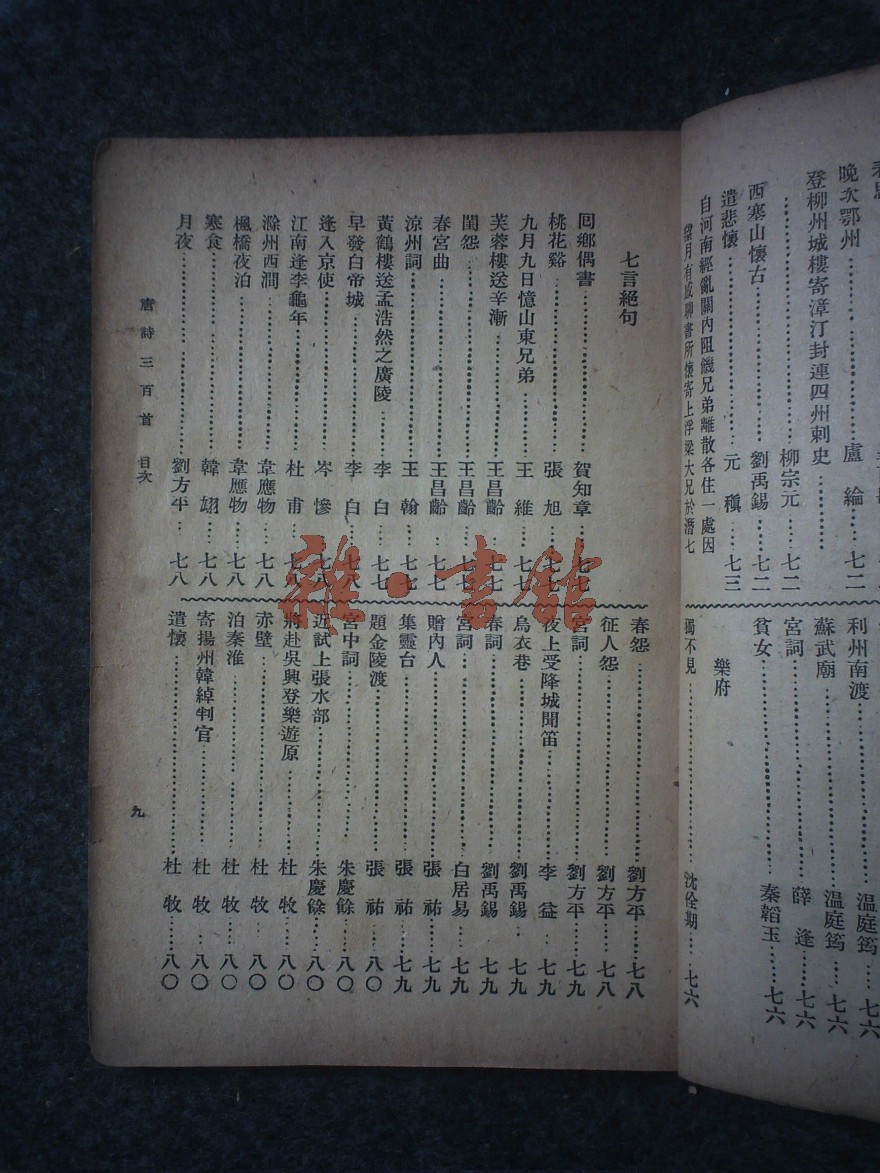 晚次鄂州……盧綸…七二
登柳州城樓寄漳汀封連四州刺史……
……柳宗元……七二
西塞山懷古……劉禹錫……七二
遣悲懷……元稹……七三
自河南經亂關內阻饑兄弟離散各住一處因
望月有感聊書所懷寄上浮梁大兄於潛七
利州南渡……温庭筠…七六
蘇武廟……温庭筠……七六
宮詞……薛逢……七六
貧女……秦韜玉……七六
樂府
獨不見……沈佺期…七六
七言絕句
囘鄉偶書……賀知章……七七
桃花谿……張旭……七七
九月九日憶山東兄弟……王維……七七
芙蓉樓送辛漸……王昌齡……七七
閨怨……王昌齡……七七
春宮曲……王昌齡……七七
涼州詞……王翰……七七
黃鶴樓送孟浩然之廣陵……李白……七七
早發白帝城……李白……七八
逢入京使……岑慘……七八
江南逢李龜年……杜甫……七八
滁州西澗……韋應物……七八
楓橋夜泊……韋應物……七八
寒食……韓翃……七八
月夜……劉方平…七八
春怨……劉方平……七八
征人怨……劉方平……七八
宮詞……劉方平……七九
夜上受降城聞笛……李益……七九
烏衣巷……劉禹錫…七九
春詞……劉禹錫……七九
宮詞……白居易……七九
贈內人……張祜……七九
集靈台……張祜……七九
題金陵渡……張祜……八〇
宮中詞……朱慶餘……八〇
近試上張水部……朱慶餘……八〇
將赴吳興登樂遊原……杜牧……八〇
赤壁……杜牧…八〇
泊秦淮……杜牧…八〇
寄揚州韓綽判官……杜牧…八〇
遣懷……杜牧……八〇
唐詩三百首 目次
九
雜·書館